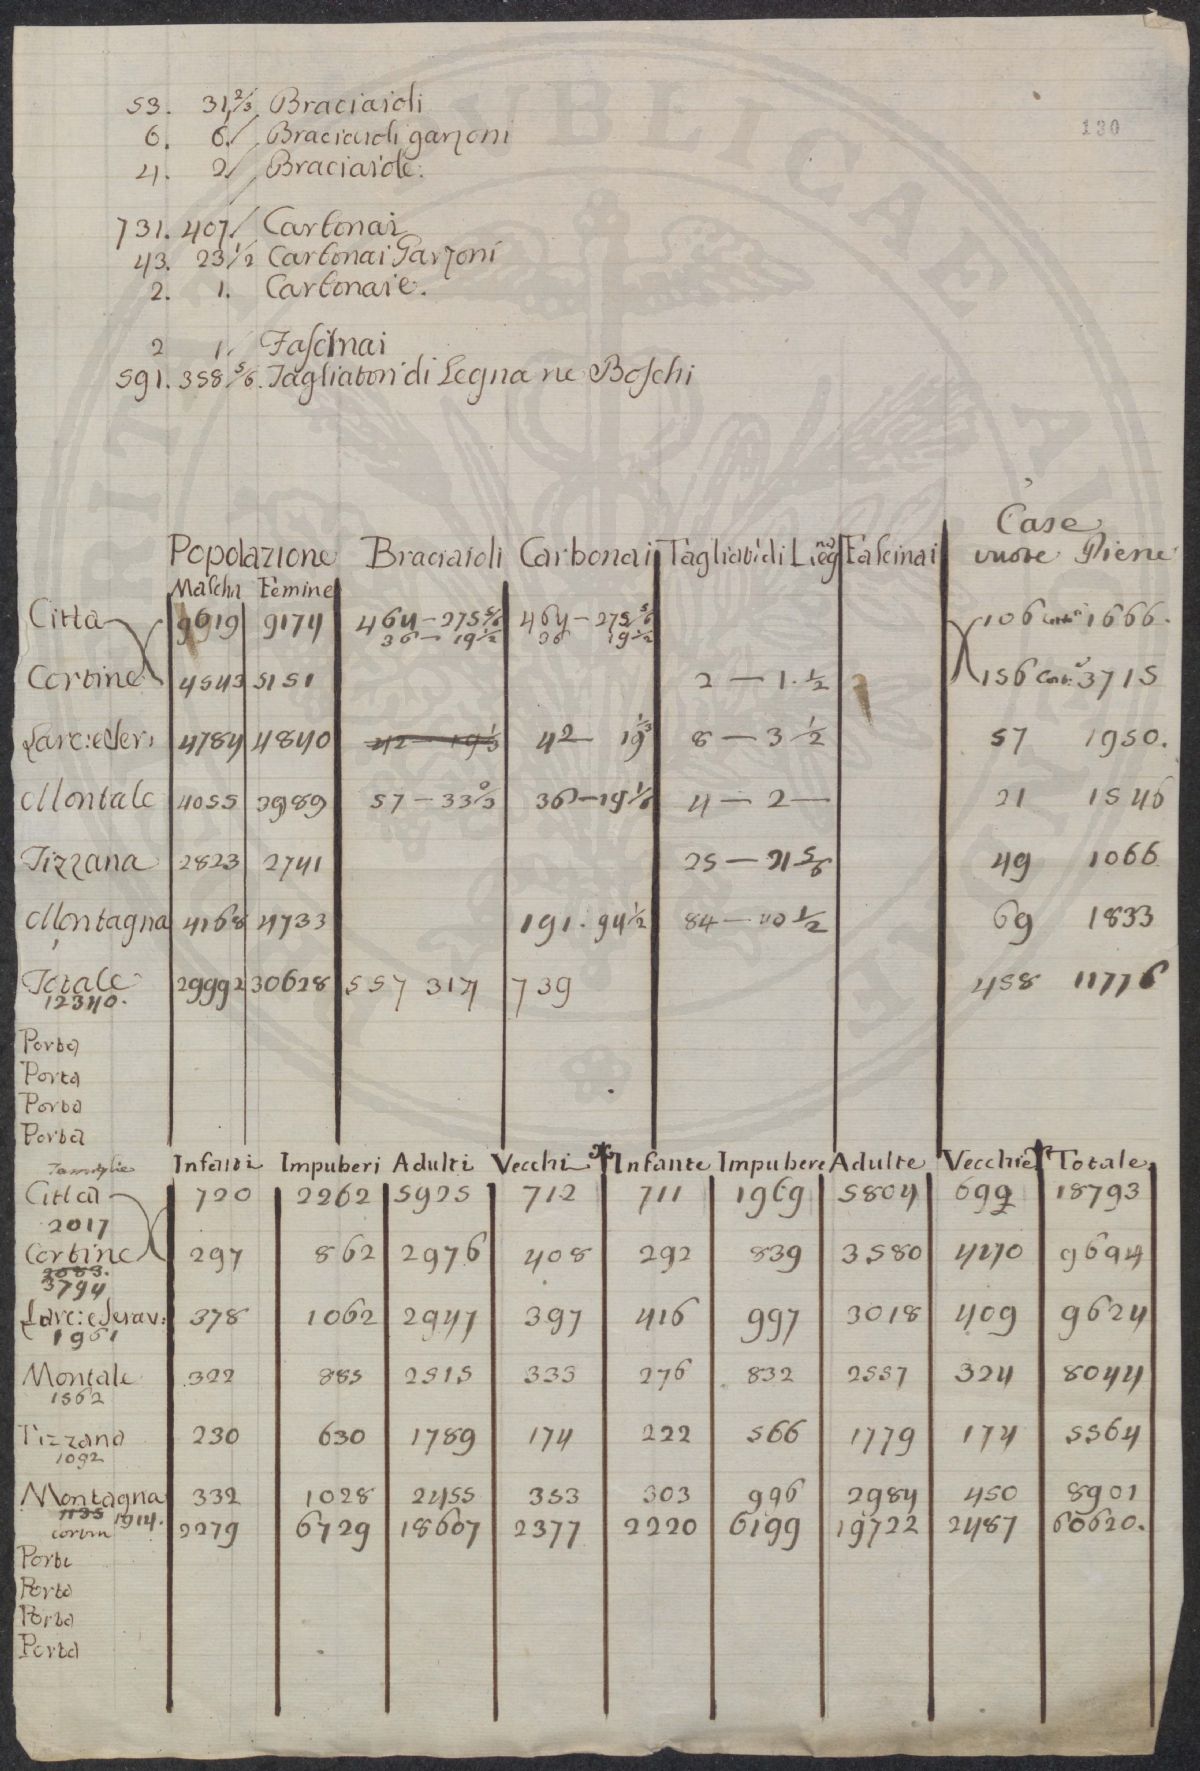 130
53. 31 2/3 Braciaioli
6. 6./ Braciaioli garzoni
4. 2/ Braciaiole.
731. 407./ Carbonai
43. 23 1/2 Carbonai Garzoni
2. 1. Carbonaie.
2 1./ Fascinai
591. 358 5/6. Tagliatori di Legna ne Boschi
Case
Popolazione Braciaioli Carbonai Tagliat: di Legna Fascinai vuote Piene
Maschi Femine
Citta 9619 9174 464-275 5/6 464-275 5/6 106 1666.
36-19 1/2 36 19 1/2
Cortine 4543 5151 2-1. 1/2 156 3715
Larc: e Ser: 4784 4840 42-19 1/3 42-19 1/3 8-3 1/2 57 1950.
Montale 4055 3989 57-33 2/3 36-19 1/2 4-2- 21 1546
Tizzana 2823 2741 25-21 5/6 49 1066
Montagna 4168 4733 191. 94 1/2 84-40 1/2 69 1833
Totale 29992 30628 557 317 739 458 11776
12340.
Porta
Porta
Porta
Porta
Famiglie Infanti Impuberi Adulti Vecchi Infante Impubere Adulte Vecchie Totale
Citta 720 2262 5925 712 711 1969 5804 699 18793
2017
Cortine 297 862 2976 408 292 839 3580 440 9694
2083.
3794
Larc: e Serav: 378 1062 2947 397 416 997 3018 409 9624
1961
Montale 322 885 2515 333 276 832 2557 324 8044
1562
Tizzana 230 630 1789 174 222 566 1779 174 5564
1092
Montagna 332 1028 2455 353 303 996 2984 450 8901
1135 1914.
2279 6729 18607 2377 2220 6199 19722 2487 60620.
Porta
Porta
Porta
Porta